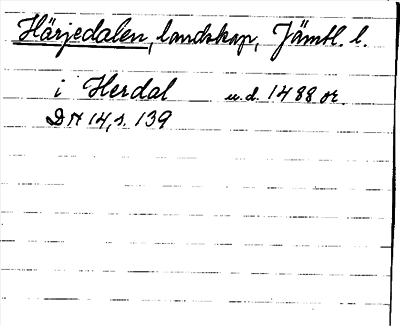 Härjedalen, landskap, Jämtl. l.
i Herdal u.d. 1488 or.
DN 14, s. 139